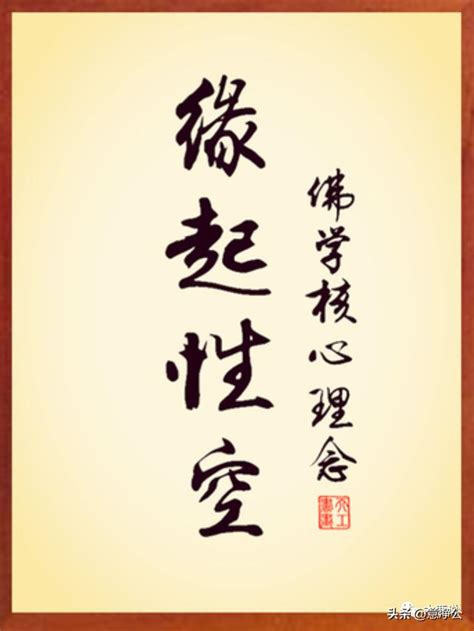 佛学核心理念
缘起性空
头条